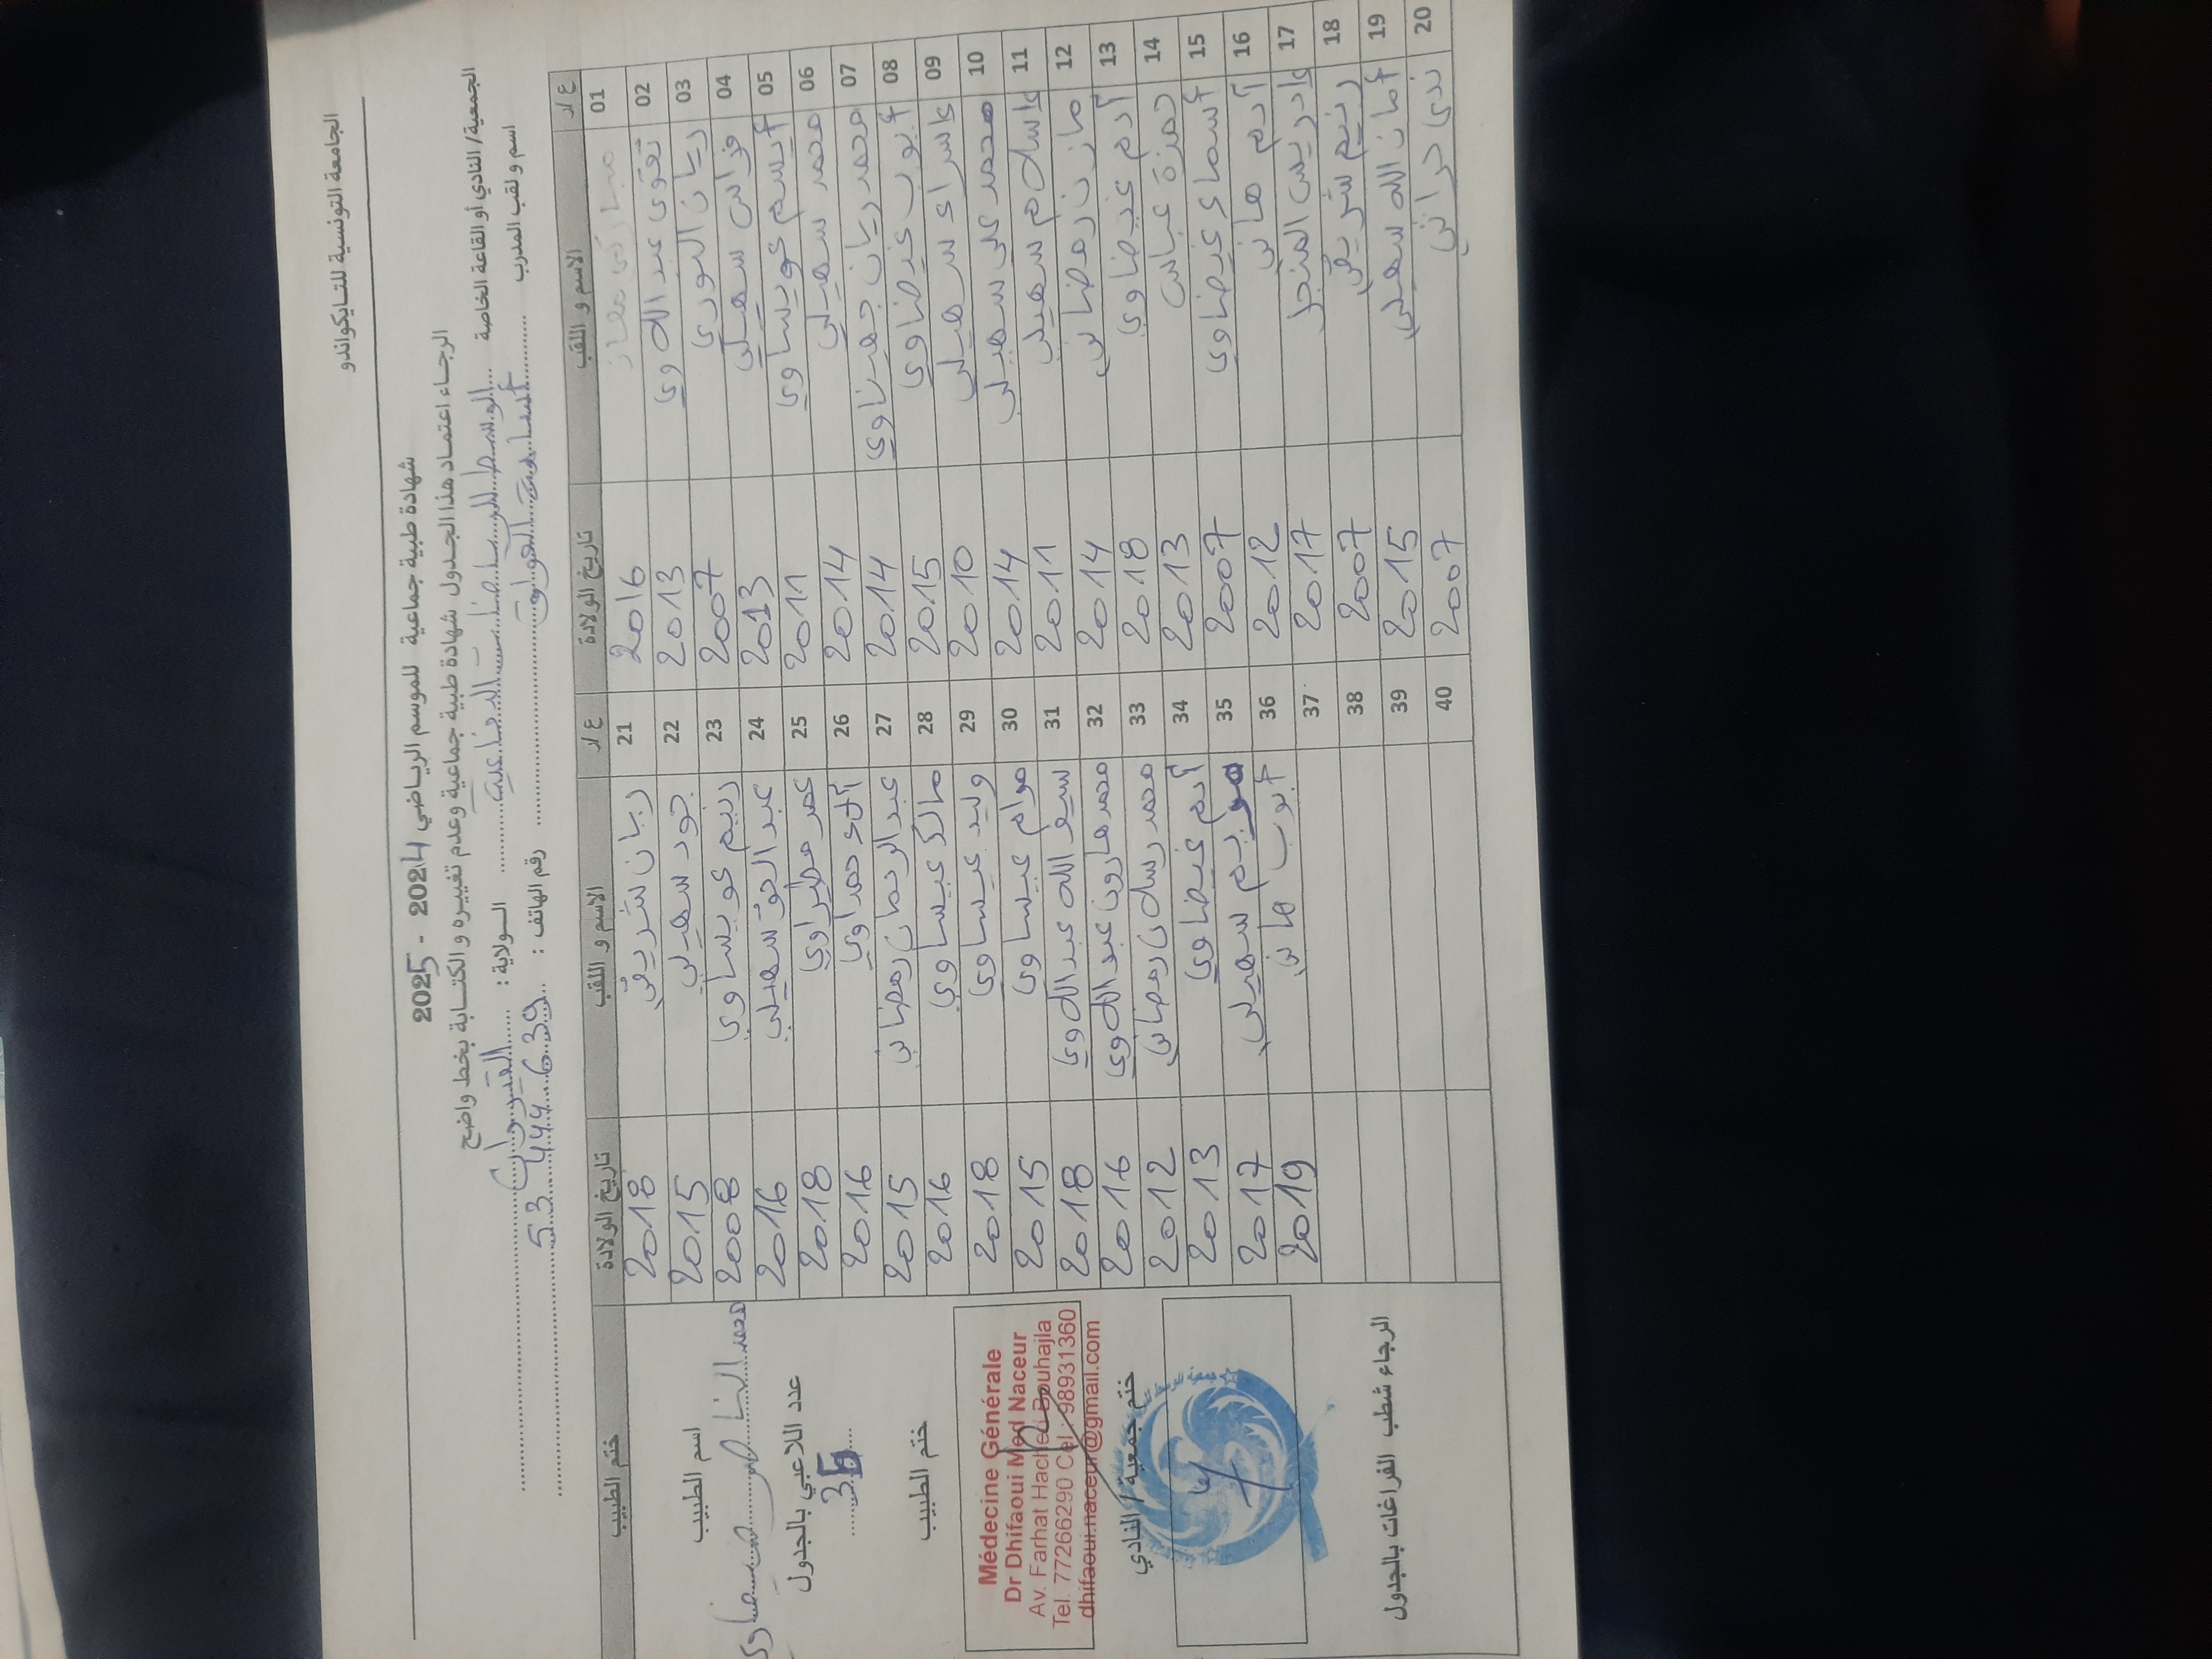 الجامعة التونسية للتايكواندو
شهادة طبية جماعية للموسم الرياضي 2024 - 2025
الرجاء اعتماد هذا الجدول شهادة طبية جماعية وعدم تغييره والكتابة بخط واضح
الجمعية/ النادي أو القاعة الخاصة ... الولاية : القيروان
اسم و لقب المدرب أسامة ... رقم الهاتف : 53 444 639
ع/د الاسم و اللقب تاريخ الولادة ع/د الاسم و اللقب تاريخ الولادة ختم الطبيب
01 2016 21 ريان شريقي 2018
02 تقوى عبد اللاوي 2013 22 جود سهيلي 2015
03 ريان النوري 2007 23 رنيم عويساوي 2008
04 فراس سهيلي 2013 24 عبد الحق سهيلي 2016
05 عويساوي 2011 25 عمر 2018
06 محمد سهيلي 2014 26 آلاء حمداوي 2016
07 محمد ريان جهيناوي 2014 27 عبد الرحمان رمضاني 2015
08 أيوب غيضاوي 2015 28 مالك عيساوي 2016
09 إسراء سهيلي 2010 29 وليد عيساوي 2018
10 محمد علي سهيلي 2014 30 مرام عيساوي 2015
11 إسلام سهيلي 2011 31 سيف الله عبد اللاوي 2018
12 مازن رمضاني 2014 32 محمد هارون عبد اللاوي 2016
13 آدم غيضاوي 2018 33 محمد رسلان رمضاني 2012
14 حمزة عباس 2013 34 آدم غيضاوي 2013
15 أسماء غيضاوي 2007 35 مريم سهيلي 2017
16 آدم هاني 2012 36 أيوب هاني 2019
17 إدريس المنجل 2017 37
18 رنيم شريقي 2007 38
19 أمان الله سهيلي 2015 39
20 ندى حراثي 2007 40
اسم الطبيب
محمد الناصر ضيفاوي
عدد اللاعبي بالجدول
ختم الطبيب
Médecine Générale
Dr Dhifaoui Med Naceur
Av. Farhat Hached Bouhajla
Tel. 77266290 Cel : 98931360
dhifaoui.naceur@gmail.com
ختم جمعية / النادي
الرجاء شطب الفراغات بالجدول